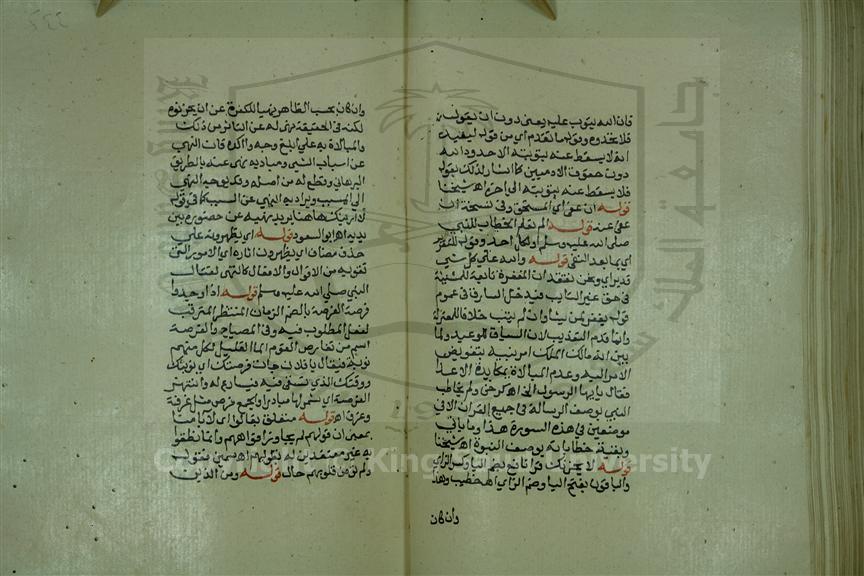 فان الله يتوب عليه يعني دون ان يقول
فلا تحدوه وقوله ما تقدم اي من قوله ليفيد
انه لا يسقط عنه بتوبته الا حدود الله
دون حقوق الادميين كما اشار لذلك بقوله
فلا يسقط عنه بتوبته الى اخره اه شيخنا
قوله ان عفى اي المستحق وفي نسخة ان
عفى عنه قوله الم تعلم الخطاب للنبي
صلى الله عليه وسلم او لكل احد وقوله للتقرير
اي بما بعد النفي قوله والله على كل شيء
قدير اي ونحن نعتقد ان المغفرة تابعة للمشيئة
في حق غير التائب فيدخل السارق في عموم
قوله يغفر لمن يشاء وان لم يتب خلافا للمعتزلة
وانما قدم التعذيب لان السياق للوعيد ولما
بين انه مالك الملك امر نبيه بتفويض
الامر اليه وعدم المبالاة بمكايدة الاعداء
فقال يا ايها الرسول الخ اه كرخي ولم يخاطب
النبي بوصف الرسالة في جميع القران الا في
موضعين في هذه السورة هذا وما ياتي
وبقية خطاباته بوصف النبوة اه شيخنا
قوله لا يحزنك قرا نافع بضم اليا وكسر الزاي
والباقون بفتح اليا وضم الزاي اه خطيب وهذا
وان كان
وان كان بحسب الظاهر نهيا للكفرة عن ان يحزنوه
لكنه في الحقيقة نهي له عن التاثر من ذلك
والمبالاة به على ابلغ وجه واكده فان النهي
عن اسباب الشيء ومباديه نهي عنه بالطريق
البرهاني وقطع له من اصله وقد يوجه النهي
الى المسبب ويراد به النهي عن السبب كما في قوله
لا ارينك هاهنا يريد نهيه عن حضوره بين
يديه اه ابو السعود قوله اي يظهرونه على
حذف مضاف اي يظهرون اثاره اي الامور التي
تقويه من الاقوال والافعال كالتهيؤ لقتال
النبي صلى الله عليه وسلم قوله اذا وجدوا
فرصة الفرصة بالضم الزمان المنتظر المترقب
لفعل المطلوب فيه وفي المصباح والفرصة
اسم من تفارص القوم الماء القليل لكل منهم
نوبة فيقال يا فلان جات فرصتك اي نوبتك
ووقتك الذي تستقي فيه فيسارع له وانتهز
الفرصة اي شمر لها مبادرا والجمع فرص مثل غرفة
وغرف اه قوله متعلق بقالوا اي لا بامنا
بمعنى ان قولهم لم يجاوز افواههم وانما نطقوا
به غير معتقدين له بقلوبهم اه سمين فقوله
ولم تؤمن قلوبهم حال قوله ومن الذين
جامعة الملك سعود
King University